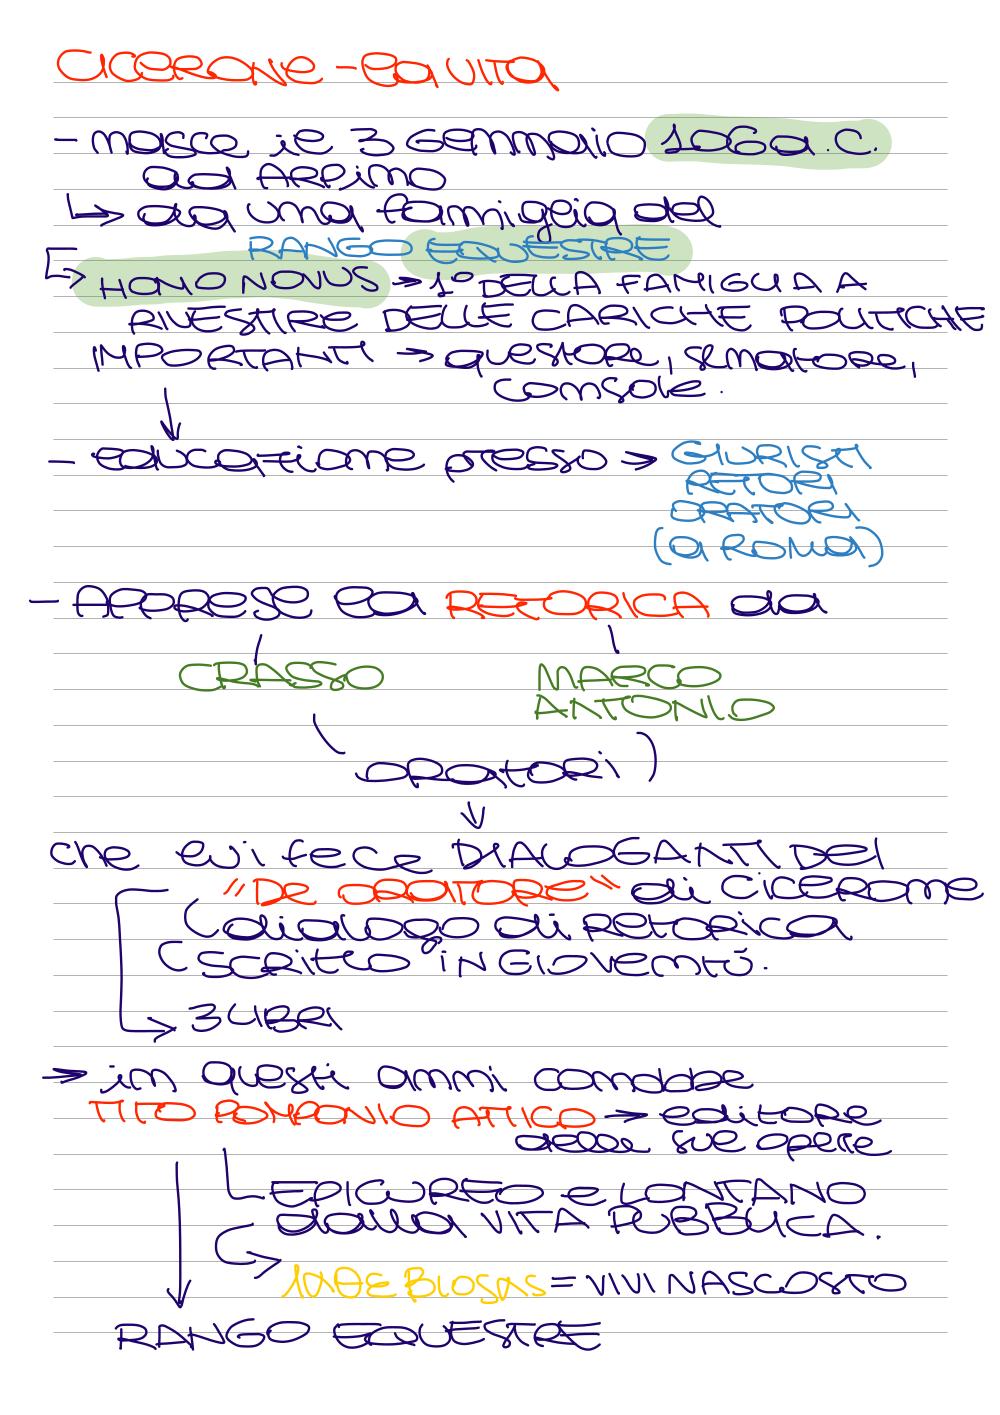 CICERONE - la VITA
- nasce il 3 Gennaio 106 a.C.
ad ARPino
↳ da una famiglia del
RANGO EQUESTRE
↳ HOMO NOVUS → 1° DELLA FAMIGLIA A
RIVESTIRE DELLE CARICHE POLITICHE
IMPORTANTI → questore, senatore,
console.
↓
- educazione presso → GIURISTI
RETORI
ORATORI
(a ROMA)
- Apprese la RETORICA da
CRASSO MARCO
ANTONIO
(oratori)
↓
che lui fece DIALOGANTI DEl
"De ORATORE" di Cicerone
(dialogo di retorica
(SCRITTO IN GIOVENTÙ.
→ 3 LIBRI
→ in questi anni conobbe
TITO POMPONIO ATTICO → editore
delle sue opere
EPICUREO e LONTANO
dalla VITA PUBBLICA.
laθE BIOSAS = VIVI NASCOSTO
RANGO EQUESTRE